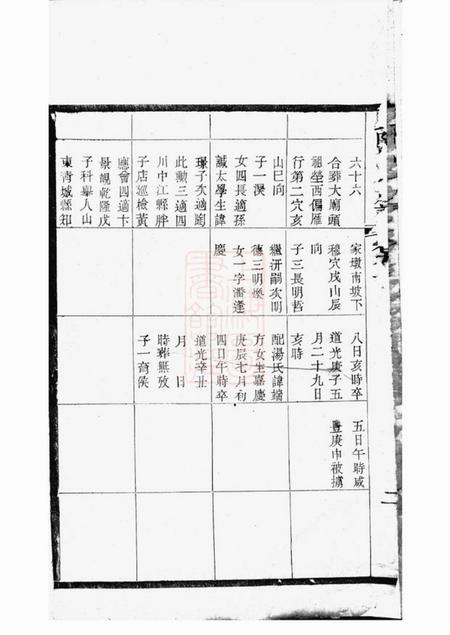 六十六
合葬大廟頭
祖塋西偏雁
行第二穴亥
山巳向
子一
女四長適孫
諴太學生諱
璟子次適
此勲三適四
川中江縣胖
子店巡檢黃
應會四適卞
景覬乾隆戊
子科舉人山
東青城縣知
家墩南坡下
穆穴戌山辰
向
子三長明哲
繼洴嗣次明
德三明煥
女一字潘逢
慶
八日亥時卒
道光庚子五
月二十九日
亥時
配湯氏諱端
方女生嘉慶
庚辰七月初
四日午時卒
道光辛丑
月 日
時葬無攷
子一育侯
五日午時咸
豐庚申被擄
二